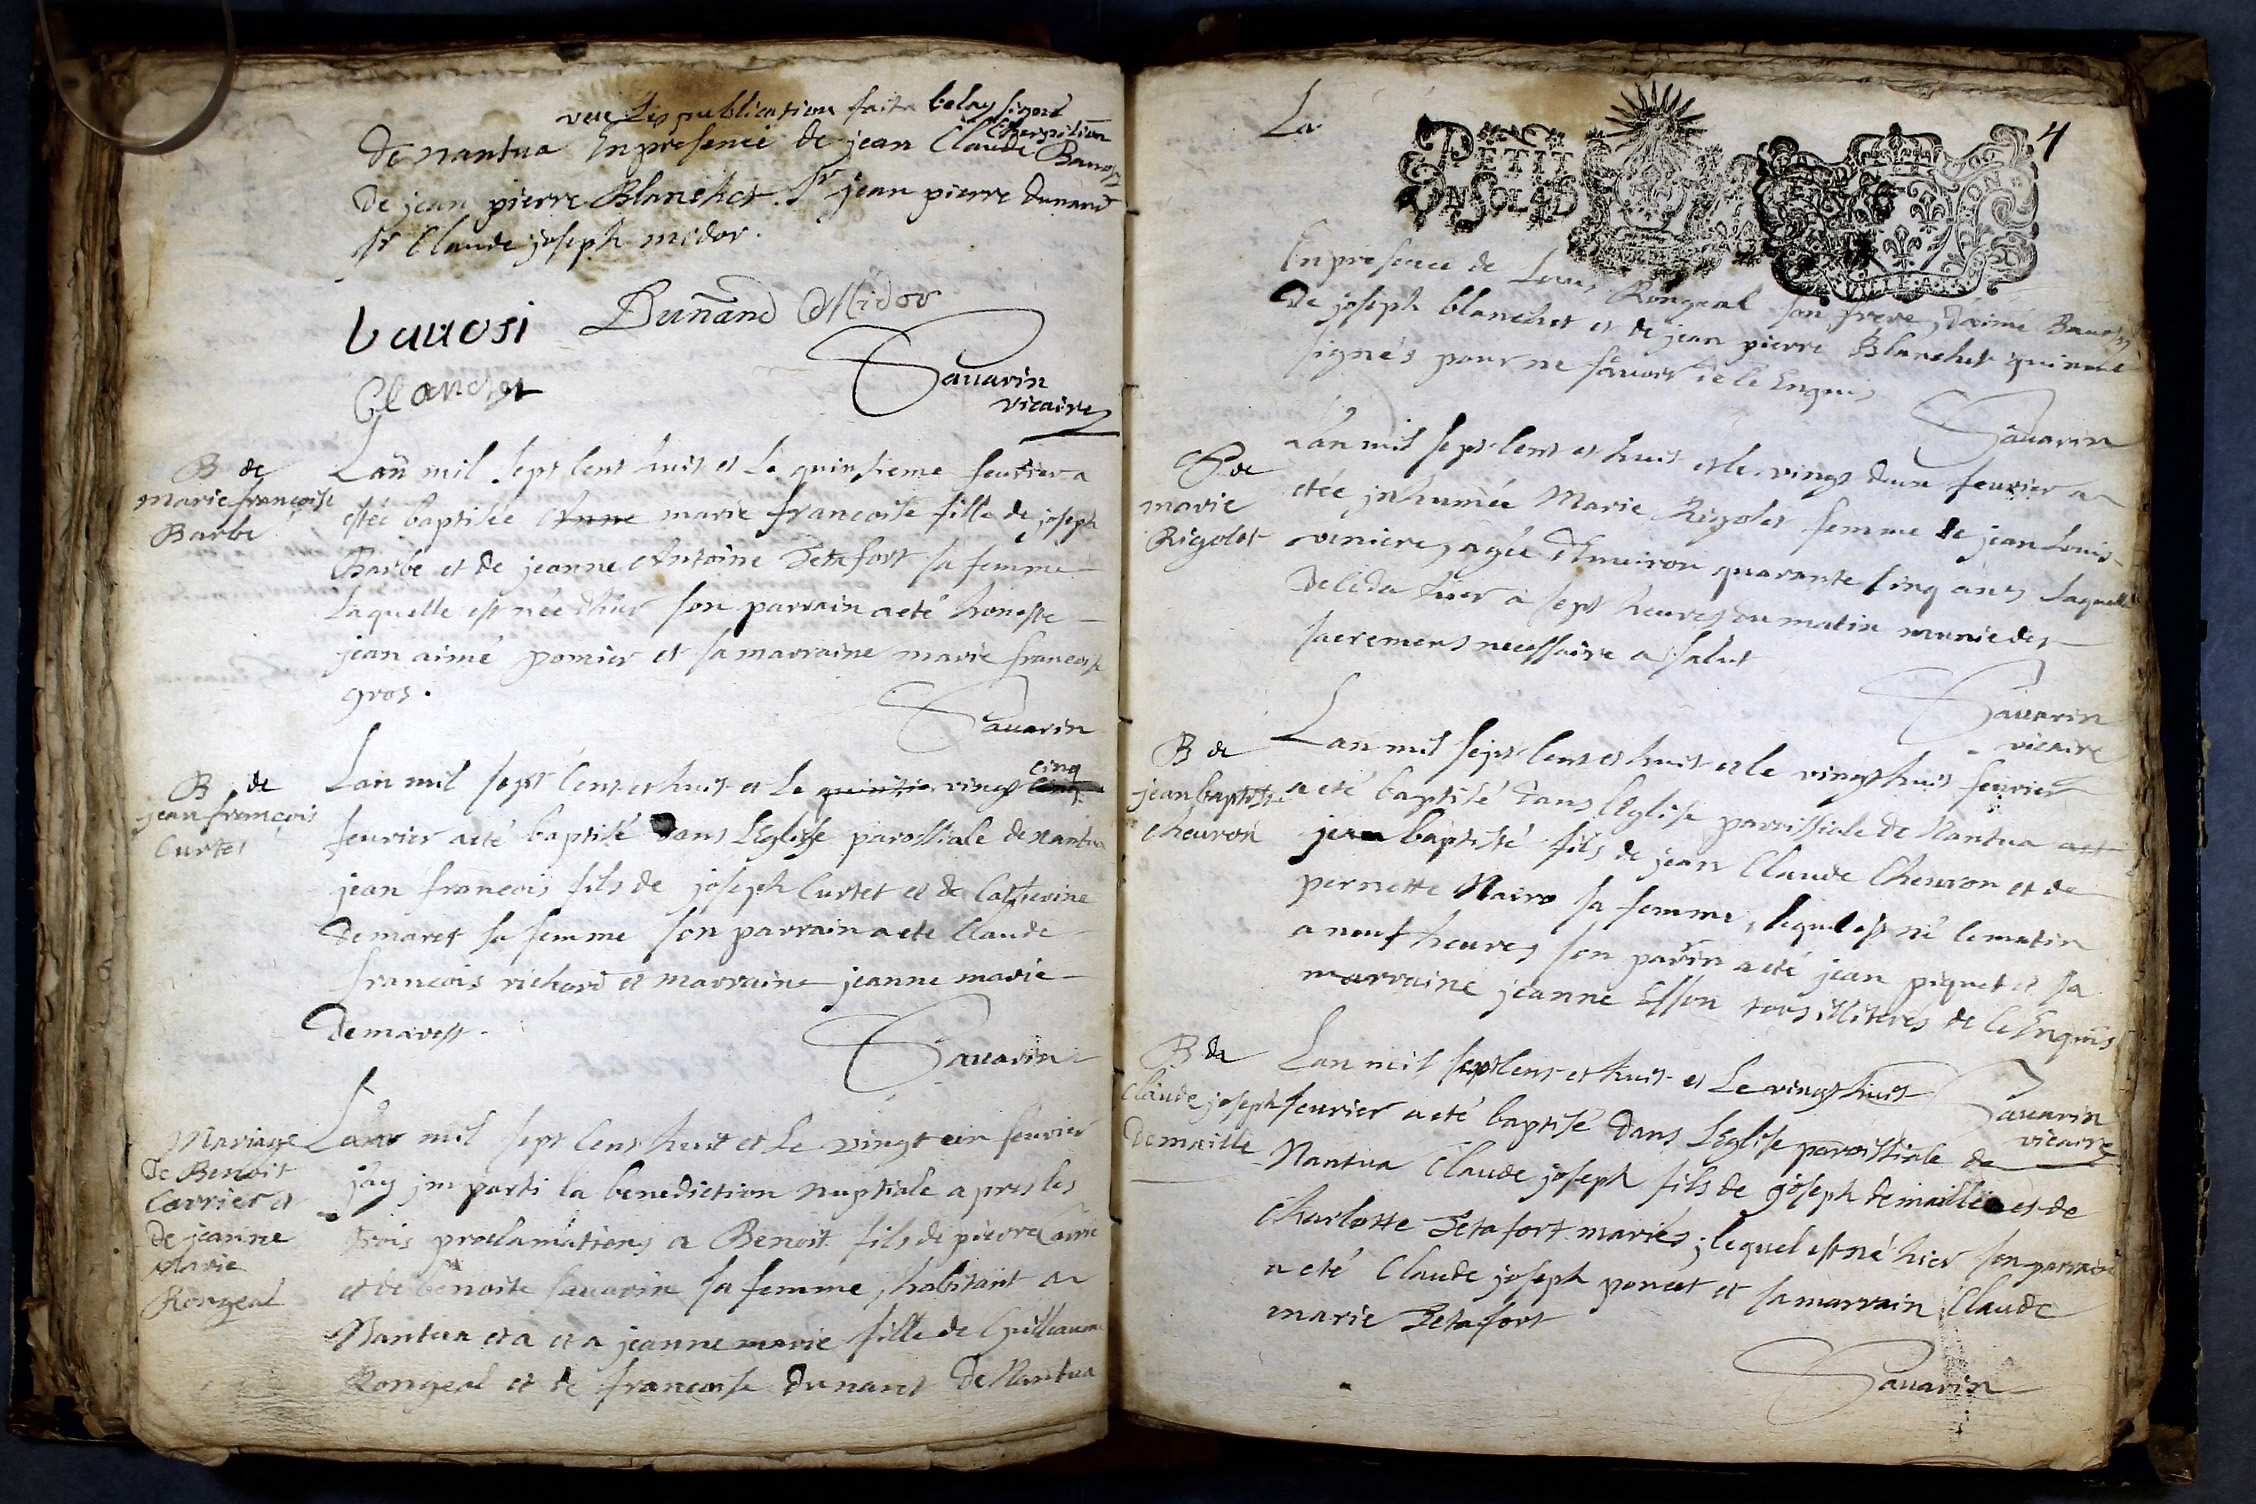 veu les publication faite belay signé
Charpilion
De nantua En presence de jean Claude Bauosy
De jean pierre Blanchet. Sr jean pierre dunand
Sr Claude joseph midor.
bauosi Dunand Midor
Blanchet
Sauarin
vicaire
B de
marie françoise
Barbe
Lan mil sept Cent huit et Le quinsieme feurier a
estée baptisée Anne marie francoise fille de joseph
Barbe et de jeanne Antoine Tetafort sa femme
Laquelle est née dhier son parrain a eté honeste
jean aimé pomier et sa marraine marie francoise
gros.
Sauarin
B de
jean françois
Curtet
Lan mil sept Cent et huit et Le quinsie vingt cinq
feurier a eté baptisé dans LEglise parossiale de nantua
jean francois fils de joseph Curtet et de Catherine
Demarest sa femme son parrain a eté Claude
francois richard et marraine jeanne marie
Demarest.
Sauarin
Mariage
De Benoit
Carrier et
de jeanne
Marie
Rongeal
Lan mil sept Cent huit et Le vingt ein feurier
jay jmparti la benediction nuptiale apres les
trois proclamations a Benoit fils de pierre
et de benoite Sauarin sa femme, habitant a
Nantua et a et a jeanne marie fille de Guillaume
Rongeal et de francoise dunant De Nantua
La
4
PETIT
EN SOLD
En presence de Louis Rongeal son frere, daimé Bauosy
De joseph blanchet et de jean pierre Blanchet qui nont
signés pour ne sauoir de ce Enquis
Sauarin
S de
marie
Rigolet
Lan mil sept Cent et huit et le vingt deux feurier a
etée jnhumée Marie Rigolet femme de jean Louis
veniere, agée d'Enuiron quarante Cinq ans Laquelle
deceda hier a sept heures du matin munie des
sacremens necessaire a salut
Sauarin
vicaire
B de
jean baptiste
Cheuron
Lan mil sept Cent et huit et le vingt huit feurier
a eté baptisé dans LEglise parrissiale de Nantua
jean baptiste fils de jean Claude Cheuron et de
pernette Mairo sa femme, lequel est né le matin
a neuf heures son parrin a eté jean piquet et sa
marraine jeanne Esson tous illiterés de ce Enquis
Sauarin
vicaire
B de
Claude joseph
Demaille
Lan mil sept Cent et huit et Le vingt huit
feurier a eté baptisé dans LEglise paroissiale de
Nantua Claude joseph fils de joseph demaille et de
Charlotte Tetafort mariés; lequel est né hier son parrain
a eté Claude joseph poncet et sa marrain Claude
marie Tetafort
Sauarin